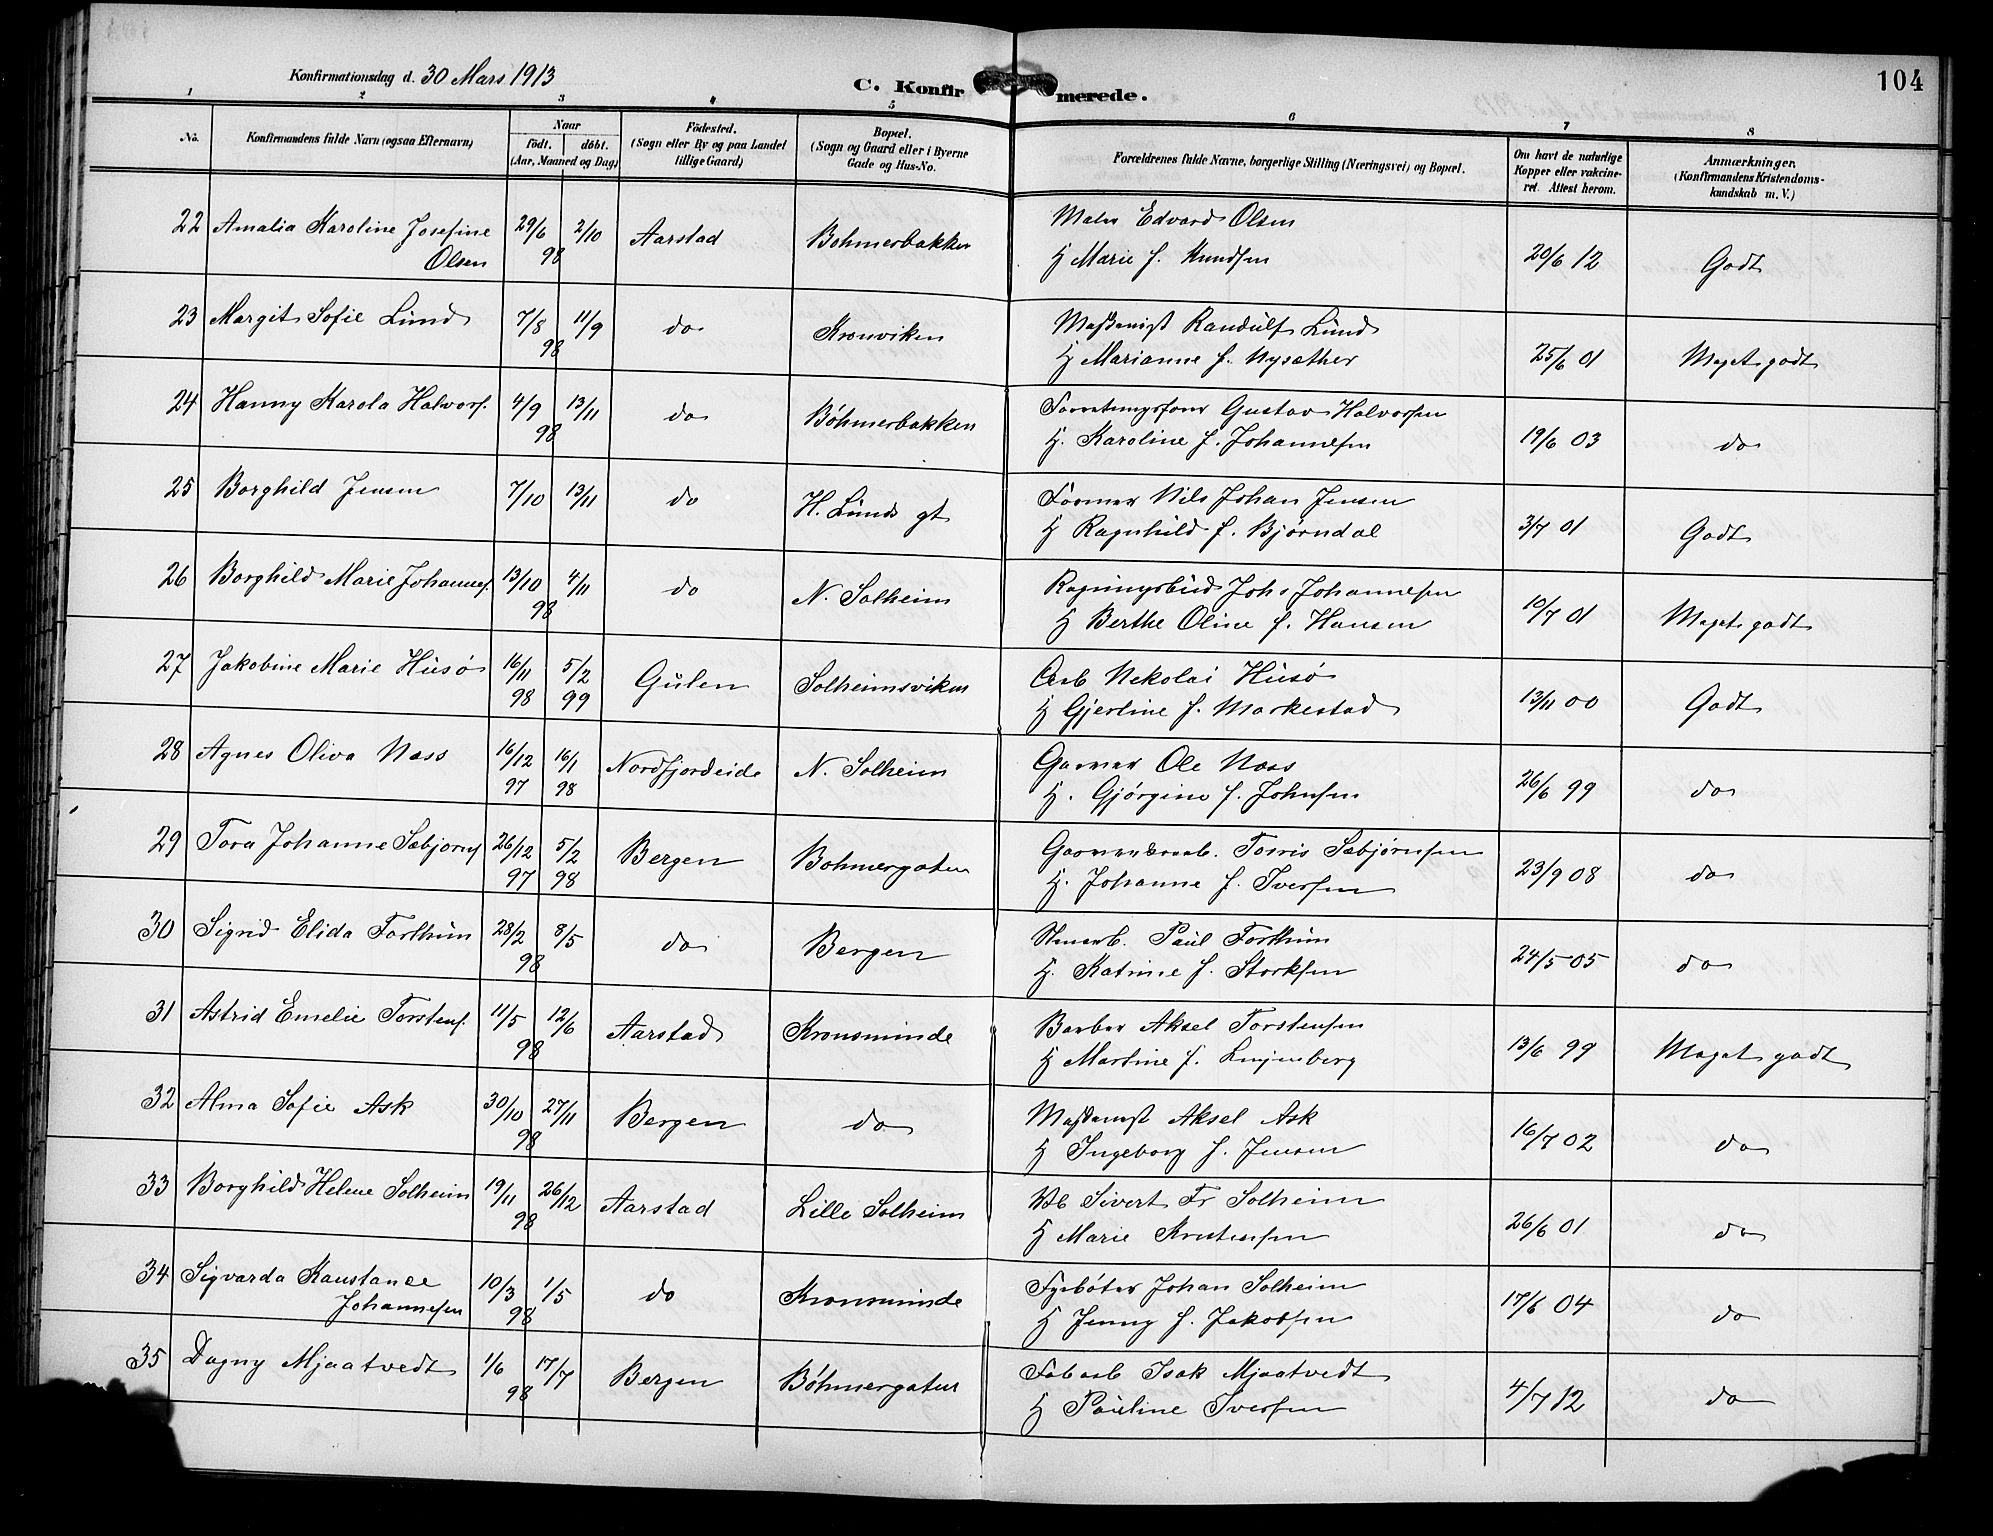 Konfirmationsdag d. 30 Mars 1913 C. Konfirmerede. 104
1 2 3 4 5 6 7 8
No. Konfirmandens fulde Navn (ogsaa Efternavn) Naar födt. döbt. (Aar, Maaned og Dag) Födested. (Sogn eller By og paa Landet tillige Gaard) Bopæl. (Sogn og Gaard eller i Byerne Gade og Hus-No. Forældrenes fulde Navne, borgerlige Stilling (Næringsvei) og Bopæl. Om havt de naturlige Kopper eller vakcineret. Attest herom. Anmærkninger. (Konfirmandens Kristendomskundskab m. V.)
22 Amalia Karoline Josefine 29/6 2/10 Aarstad Bohmerbakken Maler Edvard Olsen 20/6 12 Godt
Olsen 98 H Marie f. Knudsen
23 Margit Sofie Lund 7/8 11/9 do Kronviken Randulf Lund 25/6 01 Meget godt
98 H Marianne f. Nysæther
24 Hanny Karola Halvors. 4/9 13/11 do Böhmerbakken Gustav Halvorsen 19/6 03 do
98 H. Karoline f. Johannesen
25 Borghild Jensen 7/10 13/11 do H. Lunds gt Former Nils Johan Jensen 3/7 01 Godt
H Ragnhild f. Bjørndal
26 Borghild Marie Johannes. 13/10 4/11 do N. Solheim Regningsbud Johs Johannesen 10/7 01 Meget godt
98 H Berthe Oline f. Hansen
27 Jakobine Marie Husø 16/11 5/2 Gulen Solheimsviken Arb Nekolai Husø 13/11 00 Godt
98 99 H Gjertine f. Markestad
28 Agnes Oliva Næss 16/12 16/1 Nordfjordeide N. Solheim Garver Ole Næss 26/6 99 do
97 98 H. Gjørgine f. Johnsen
29 Tora Johanne Sæbjørns 26/12 5/2 Bergen Bohmergaten Torris Sæbjørnsen 23/9 08 do
97 98 H. Johanne f. Iversen
30 Sigrid Elida Forthun 28/2 8/5 do Bergen Paul Forthun 24/5 05 do
98 H. Katrine f. Storksen
31 Astrid Emelie Torstens. 11/5 12/6 Aarstad Kronsminde Barber Aksel Torstensen 13/6 99 Meget godt
98 H Martine f.
32 Alma Sofie Ask 30/10 27/11 Bergen do Aksel Ask 16/7 02 do
98 H Ingeborg f. Jensen
33 Borghild Helene Solheim 19/11 26/12 Aarstad Lille Solheim Sivert Fr Solheim 26/6 01 do
98 H Marie Kristensen
34 Sigvarda Kanstance 10/3 1/5 do Kronsminde Fyrbøter Johan Solheim 17/6 04 do
Johannesen 98 H Jenny f. Jakobsen
35 Dagny Mjaatvedt 1/6 17/7 Bergen Böhmergatur Fabarb Isak Mjaatvedt 4/7 12 do
98 H Pauline Iversen